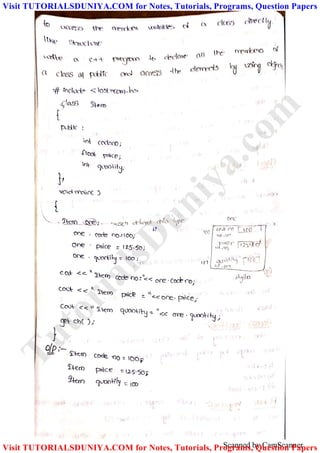 Visit TUTORIALSDUNIYA.COM for Notes, Tutorials, Programs, Question Papers
to access the member variables of a class directly.
like structure
write a c++ program to declare all the members of
a class as public and access the elements by using object
# include <iostream.h>
class Item
{
public :
int codeno;
float price;
int quantity;
};
void main( )
{
Item one;
one
one . code no=100;
one . price = 125.50;
one . quantity = 100;
cout << "Item code no:"<< one.code no;
cout << "Item price = "<<one.price;
cout << "Item quantity = "<< one.quantity;
get ch( );
}
o/p:-
Item code no = 100
Item price =125.50
Item quantity = 100
TutorialsDuniya.com
Scanned by CamScanner
Visit TUTORIALSDUNIYA.COM for Notes, Tutorials, Programs, Question Papers